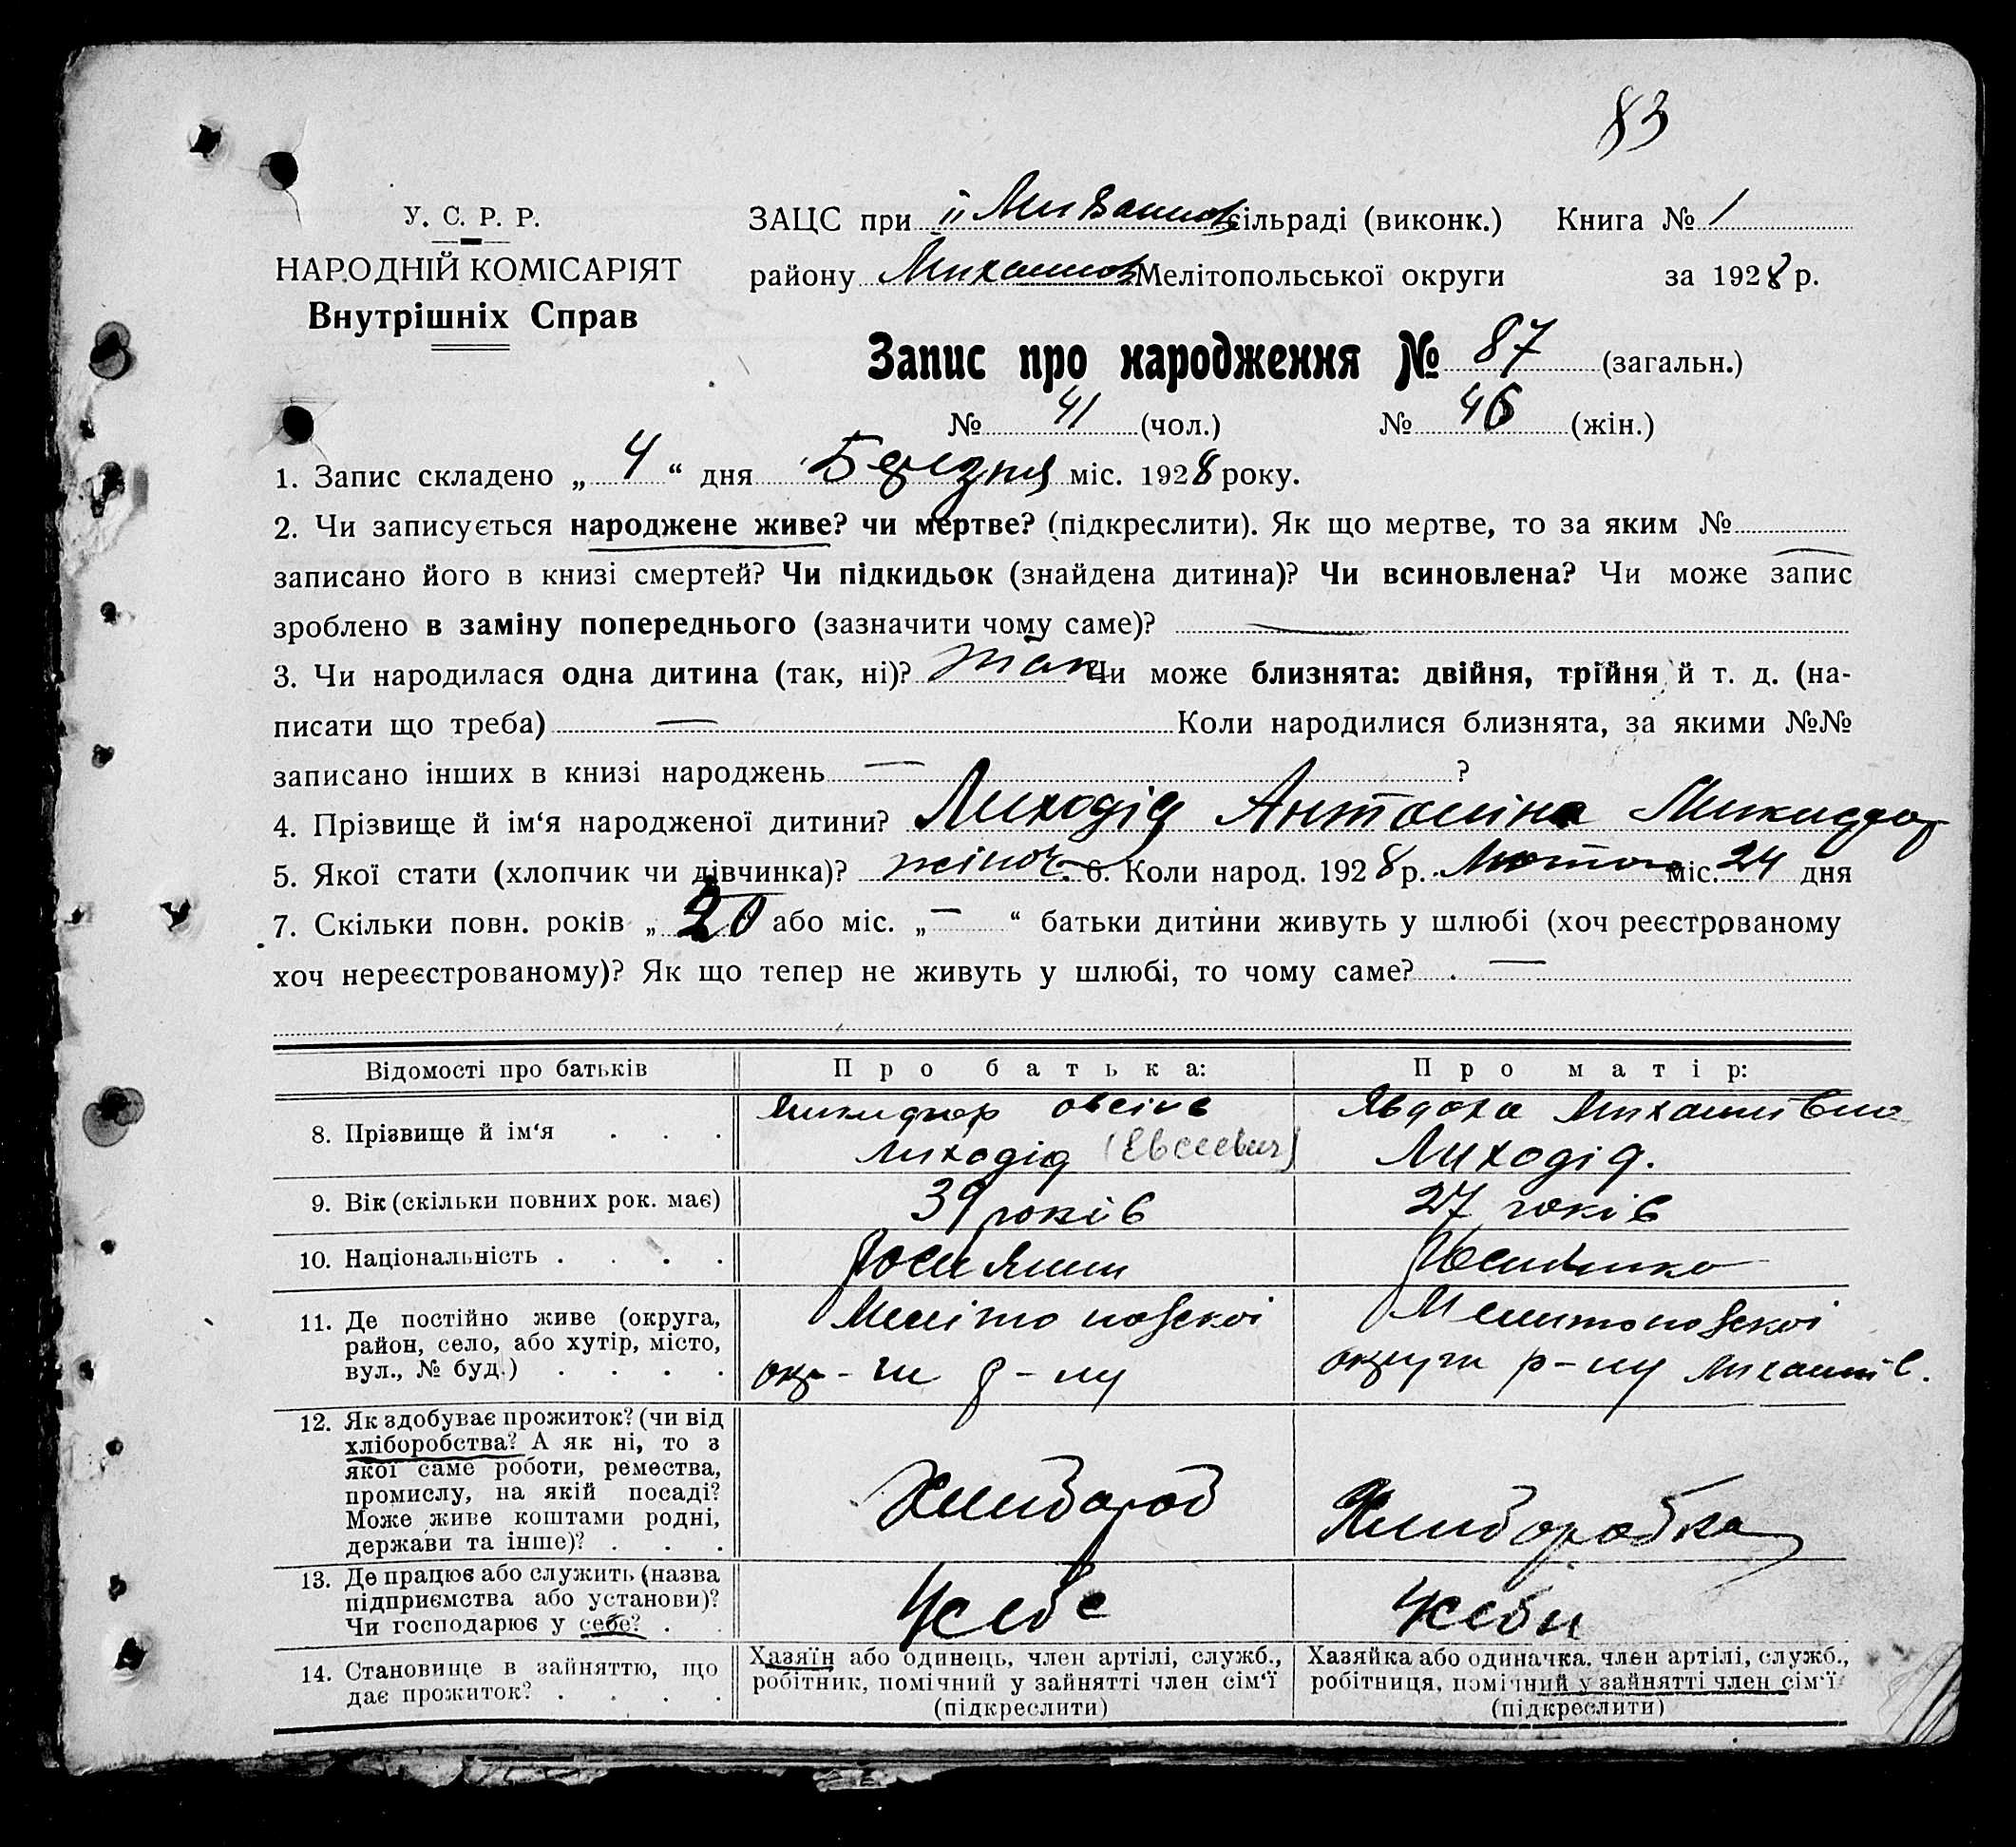 83
У. С. Р. Р.
НАРОДНІЙ КОМІСАРІЯТ
Внутрішніх Справ
ЗАЦС при сільраді (виконк.) Книга № 1
району Михайлов Мелітопольської округи за 1928 р.
Запис про народження № 87 (загальн.)
№ 41 (чол.) № 46 (жін.)
1. Запис складено „ 4 “ дня Березня міс. 1928 року.
2. Чи записується народжене живе? чи мертве? (підкреслити). Як що мертве, то за яким №
записано його в книзі смертей? Чи підкидьок (знайдена дитина)? Чи всиновлена? Чи може запис
зроблено в заміну попереднього (зазначити чому саме)? —
3. Чи народилася одна дитина (так, ні)? так Чи може близнята: двійня, трійня й т. д. (на-
писати що треба) — Коли народилися близнята, за якими №№
записано інших в книзі народжень — ?
4. Прізвище й ім‘я народженої дитини? Лиходід Антоніна Микифор
5. Якої стати (хлопчик чи дівчинка)? жіноч. 6. Коли народ. 1928 р. Лютого міс. 24 дня
7. Скільки повн. років „ 20 або міс. „ — “ батьки дитини живуть у шлюбі (хоч реєстрованому
хоч нереєстрованому)? Як що тепер не живуть у шлюбі, то чому саме? —
Відомості про батьків Про батька: Про матір:
8. Прізвище й ім‘я Микифор Овсіїв Явдоха Михайлівна
Лиходід (Евсеевич) Лиходід.
9. Вік (скільки повних рок. має) 39 років 27 років
10. Національність Росіянин
11. Де постійно живе (округа,
район, село, або хутір, місто,
вул., № буд.)
Мелітопольскої
окр-ги р-ну
Мелитопольскої
округи р-ну Михайлів.
12. Як здобуває прожиток? (чи від
хліборобства? А як ні, то з
якої саме роботи, ремества,
промислу, на якій посаді?
Може живе коштами родні,
держави та інше)?
Хлибороб Хлиборобка
13. Де працює або служить (назва
підприємства або установи)?
Чи господарює у себе?
У себе У себи
14. Становище в зайняттю, що
дає прожиток?
Хазяїн або одинець, член артілі, служб.,
робітник, помічний у зайнятті член сім‘ї
(підкреслити)
Хазяйка або одиначка, член артілі, служб.,
робітниця, помічний у зайнятті член сім‘ї
(підкреслити)